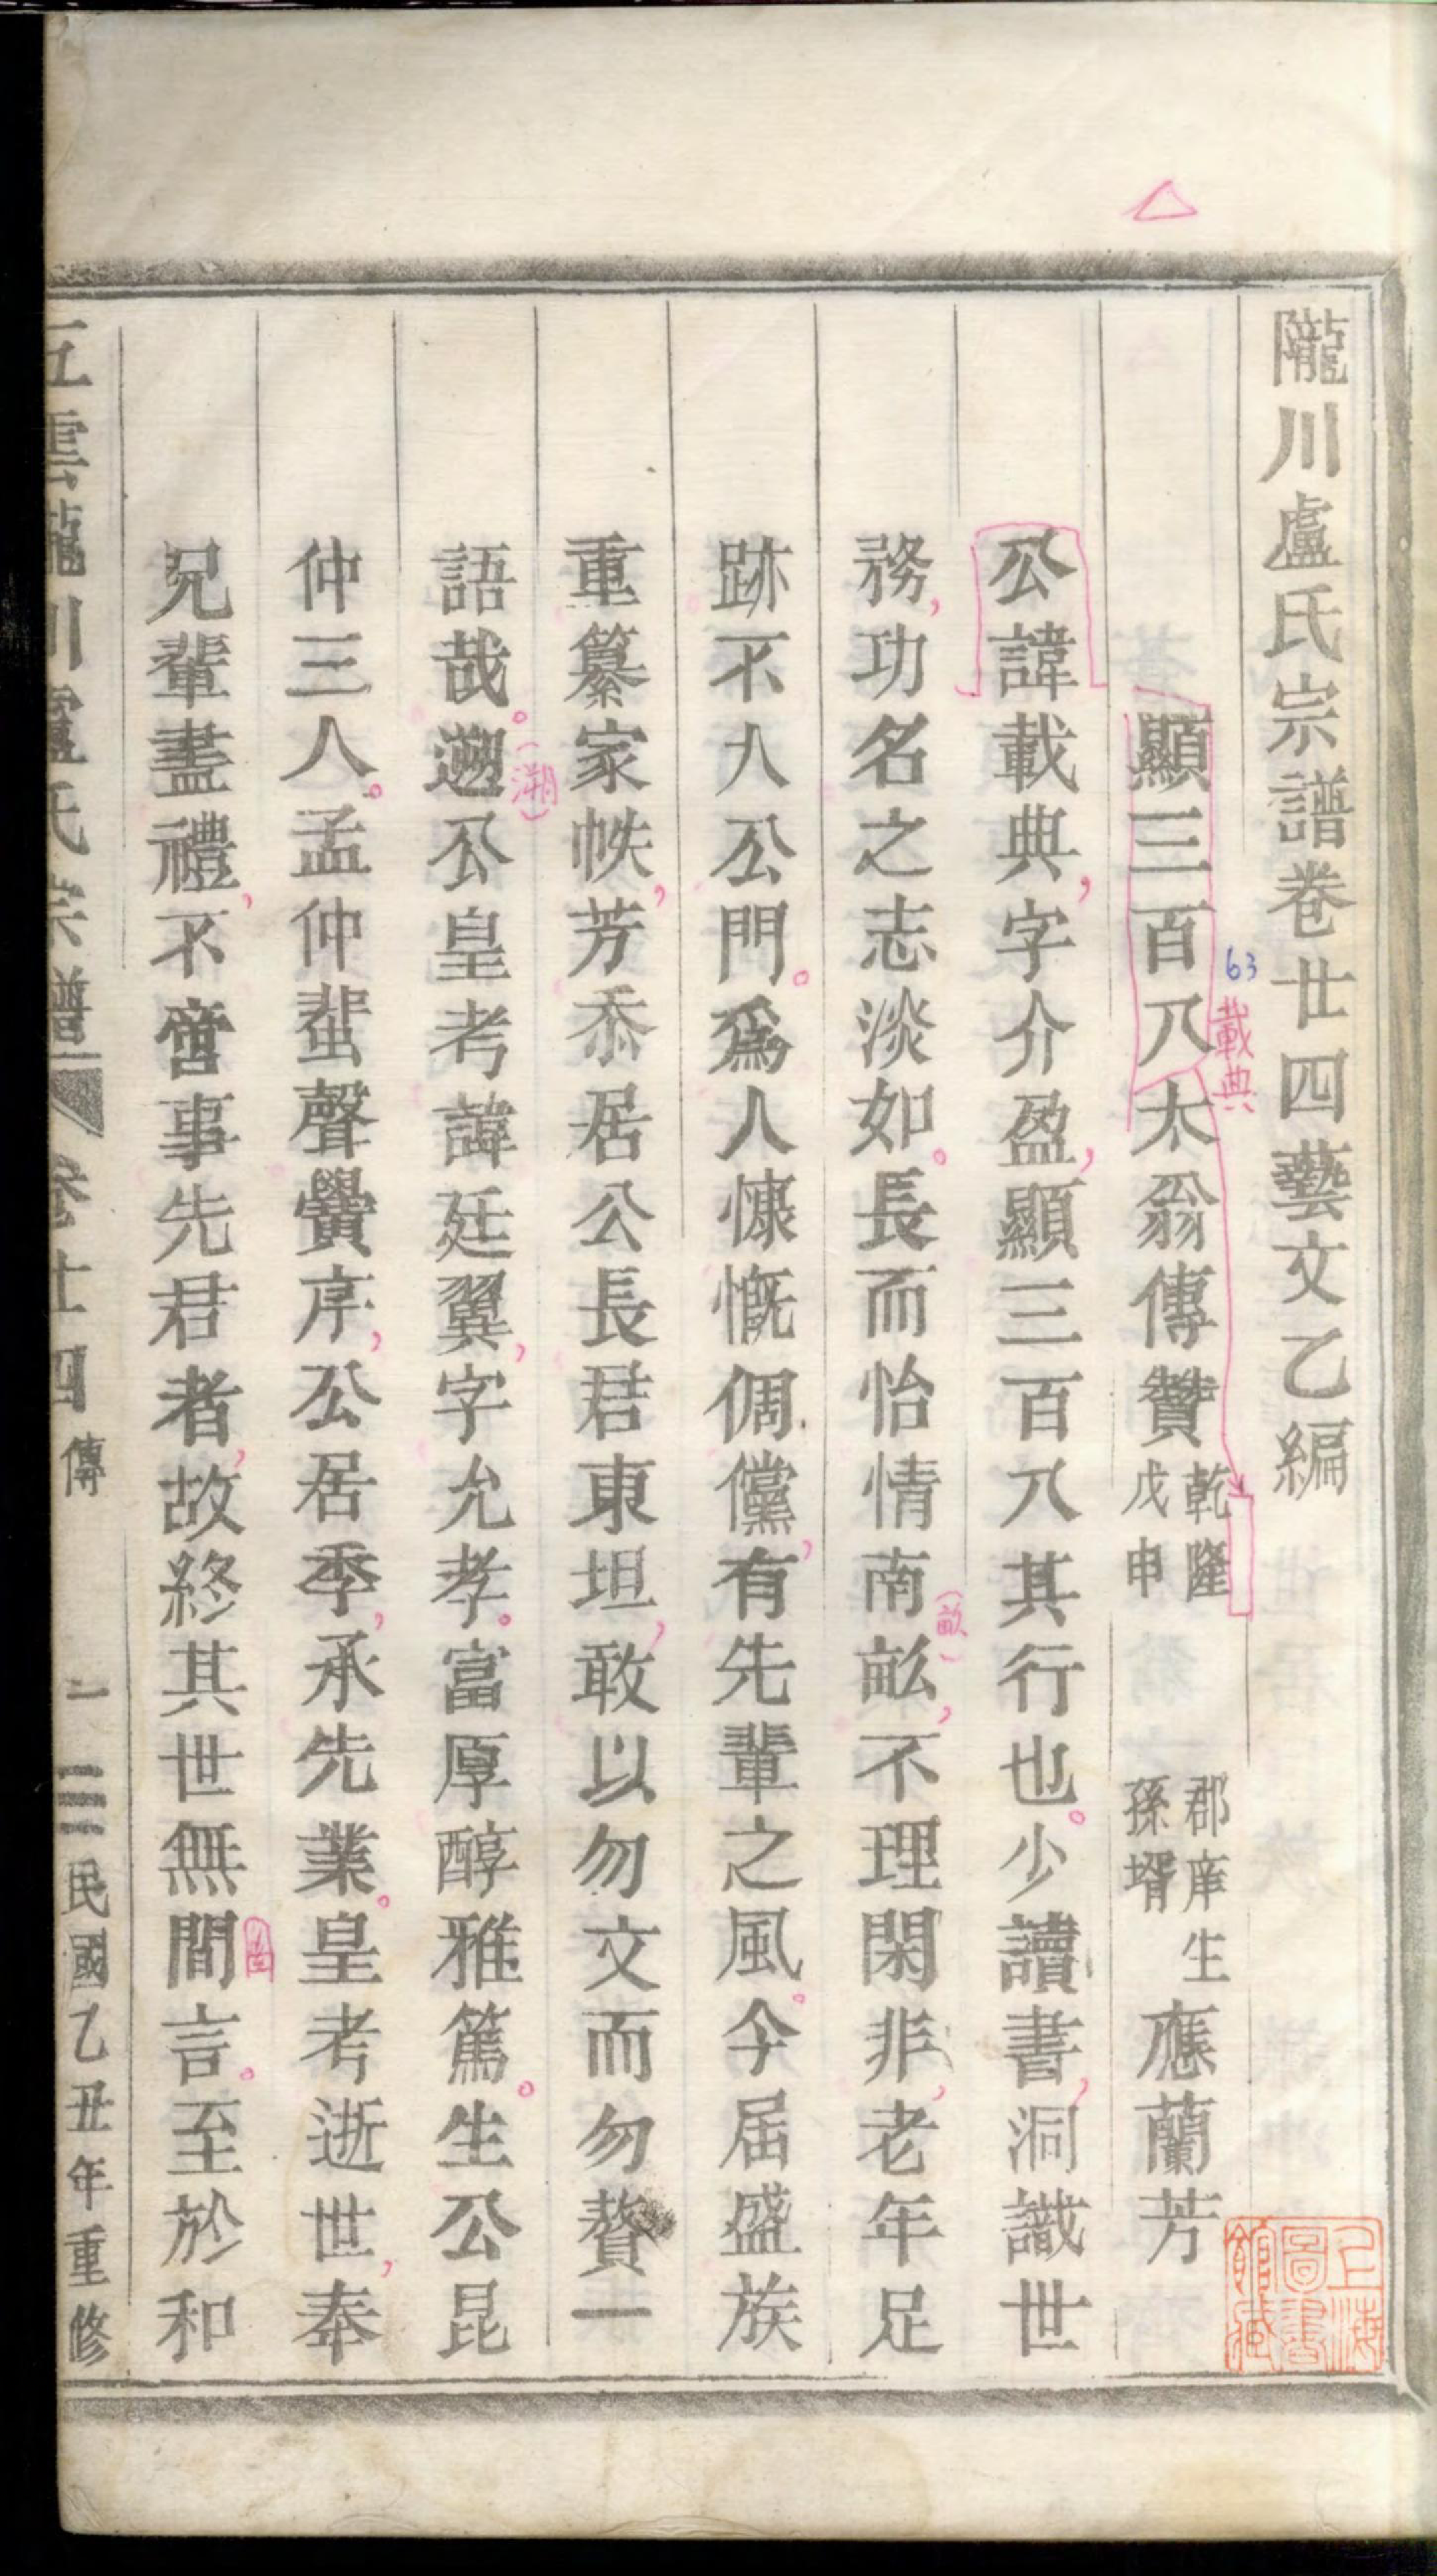 隴川盧氏宗譜卷廿四藝文乙編
顯三百八太翁傳贊 乾隆戊申 郡庠生孫壻 應蘭芳
63
載典
公諱載典,字介盈,顯三百八其行也。少讀書,洞識世
務,功名之志淡如。長而怡情南畝,不理閑非,老年足
(畝)
跡不入公門。爲人慷慨倜儻,有先輩之風。今屆盛族
重纂家帙,芳忝居公長君東坦,敢以勿文而勿贅一
語哉。遡公皇考諱廷翼,字允孝。富厚醇雅篤。生公昆
(溯)
仲三人。孟仲蜚聲黌序,公居季,承先業。皇考逝世,奉
兄輩盡禮,不啻事先君者,故終其世無間言。至於和
五雲隴川盧氏宗譜 卷廿四 傳 一 民國乙丑年重修
上海圖書館藏